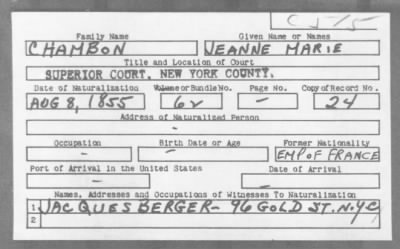 C 515
Family Name Given Name or Names
CHAMBON JEANNE MARIE
Title and Location of Court
SUPERIOR COURT, NEW YORK COUNTY.
Date of Naturalization Volume or Bundle No. Page No. Copy of Record No.
AUG 8, 1855 62 - 24
Address of Naturalized Person
-
Occupation Birth Date or Age Former Nationality
- - EMP OF FRANCE
Port of Arrival in the United States Date of Arrival
- -
Names, Addresses and Occupations of Witnesses To Naturalization
1 JACQUES BERGER - 96 GOLD ST. N.Y.C
2